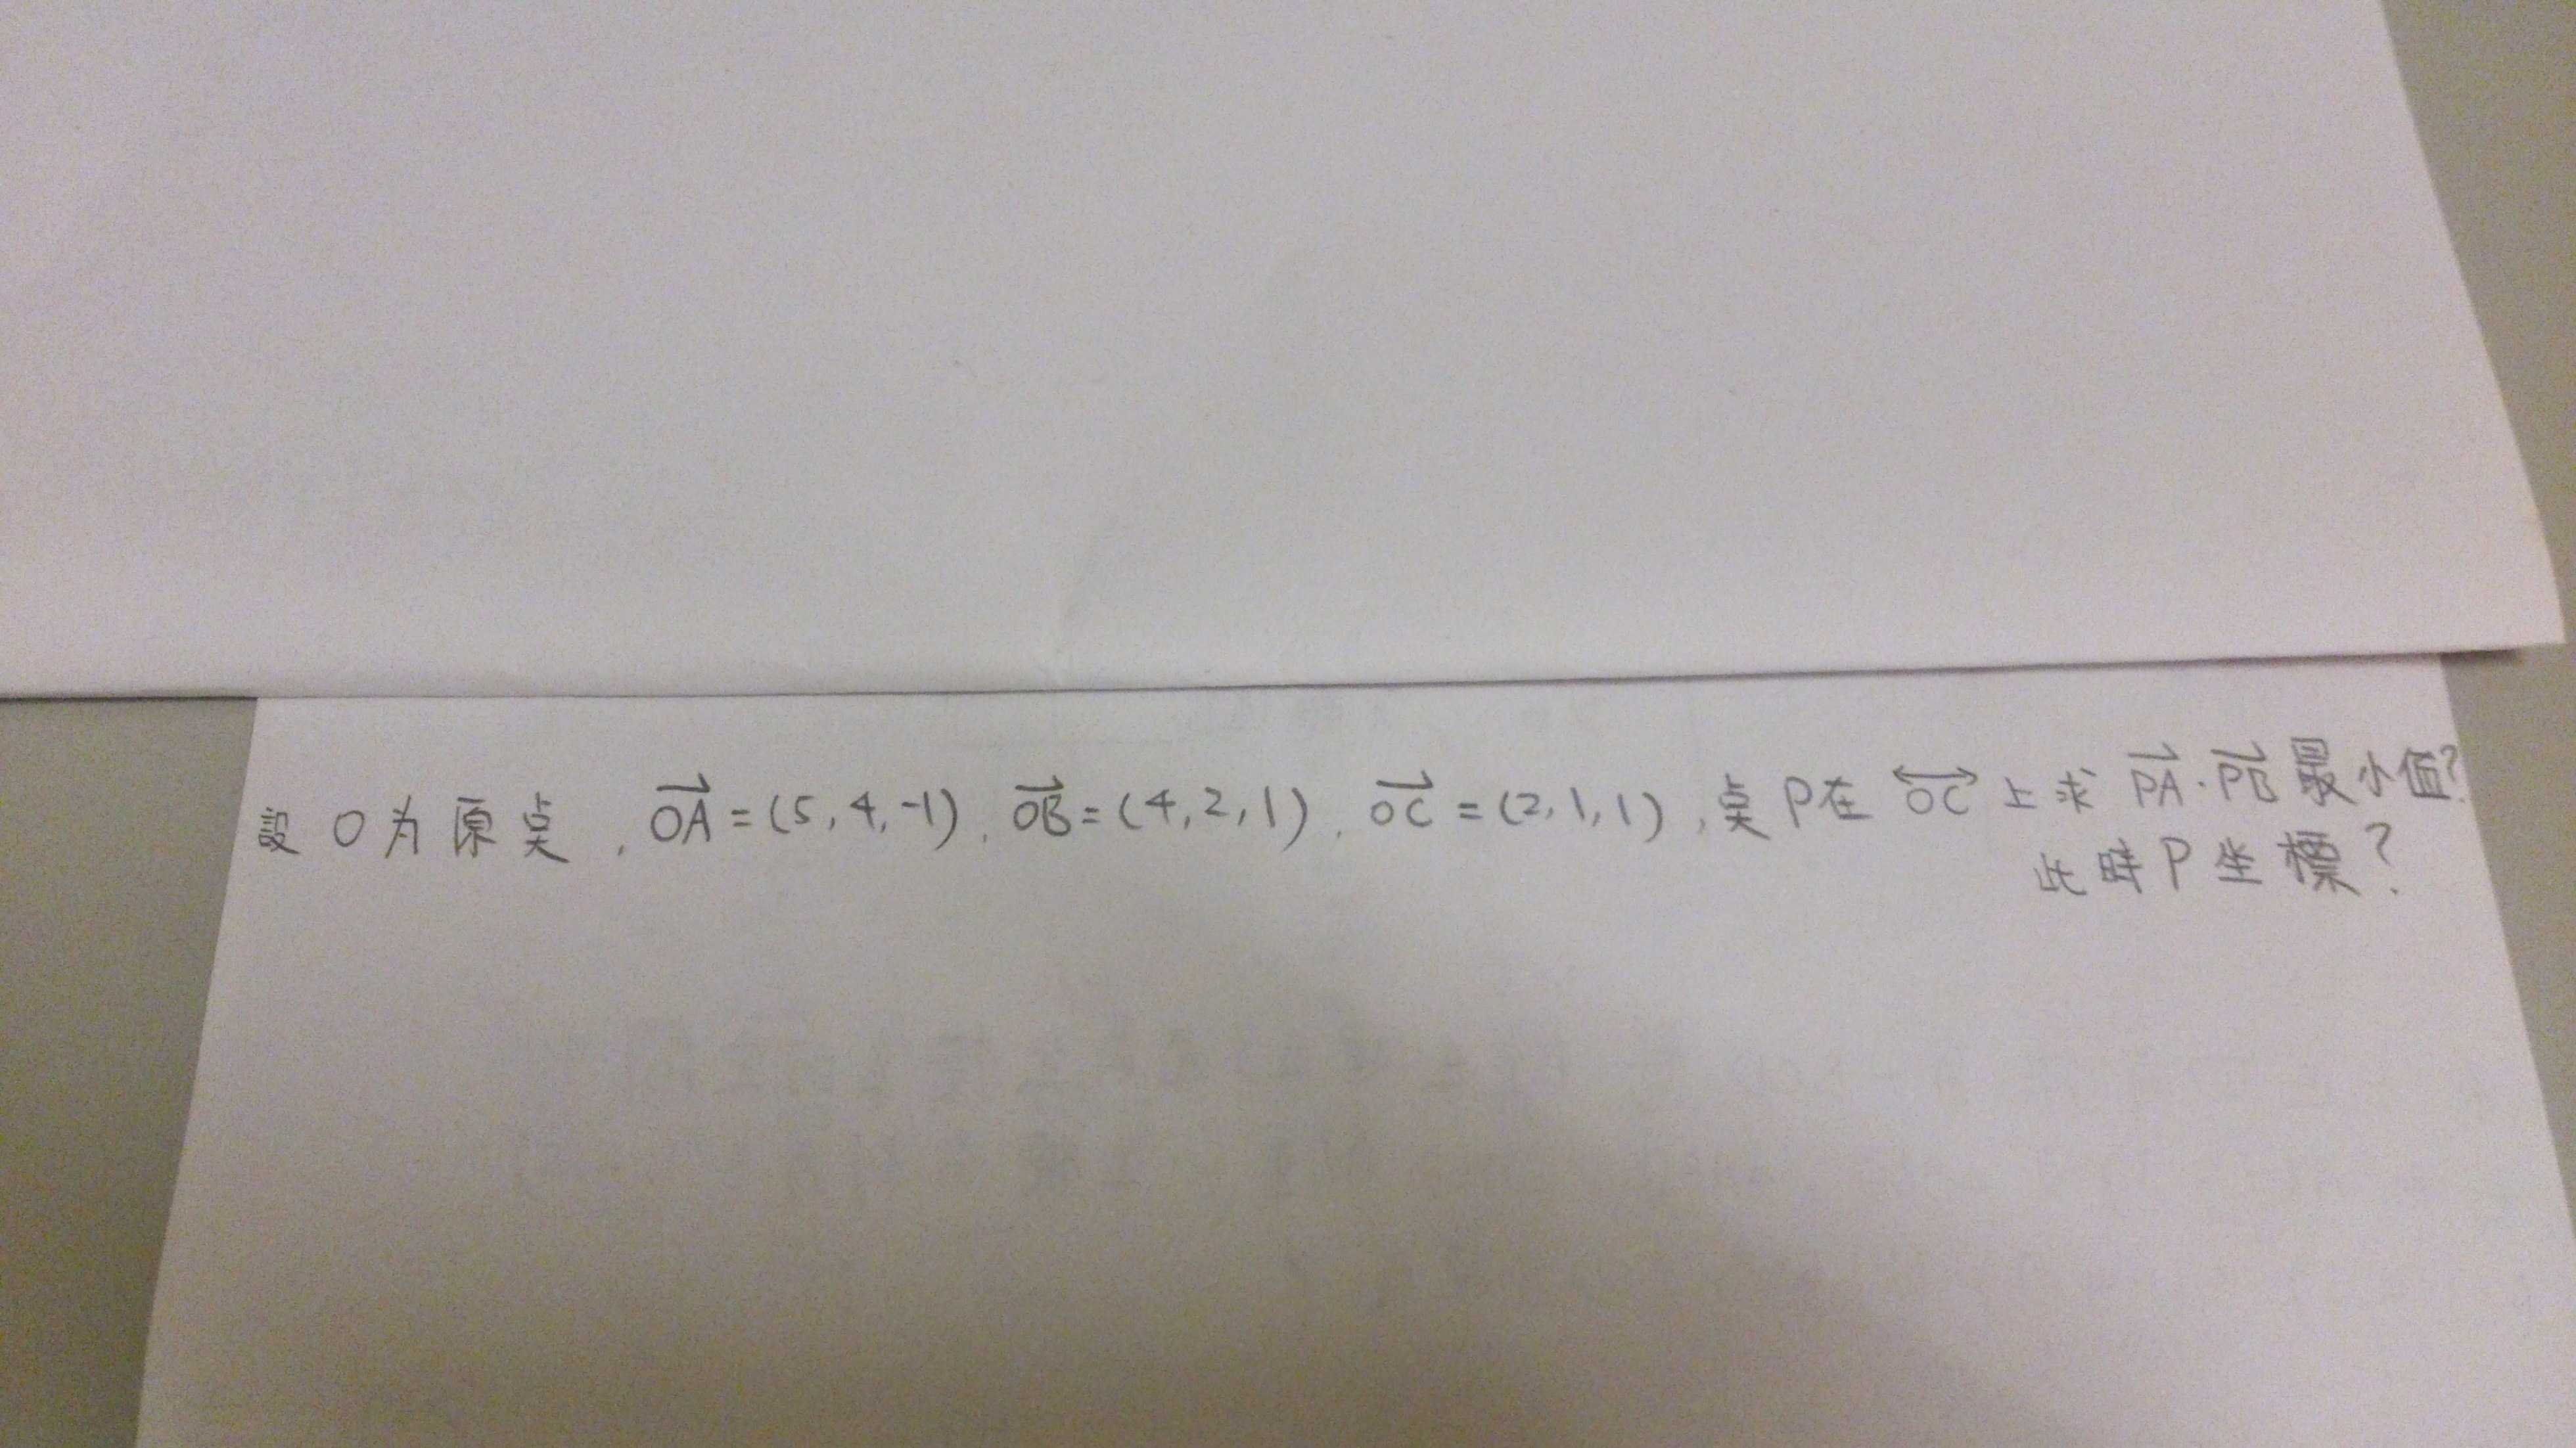 設 O 为 原 桌 , OA = (5, 4, -1) , OB = (4, 2, 1) , OC = (2, 1, 1) , 桌 P 在 OC 上 求 PA · PB 最 小 值?
此 時 P 坐 標 ?